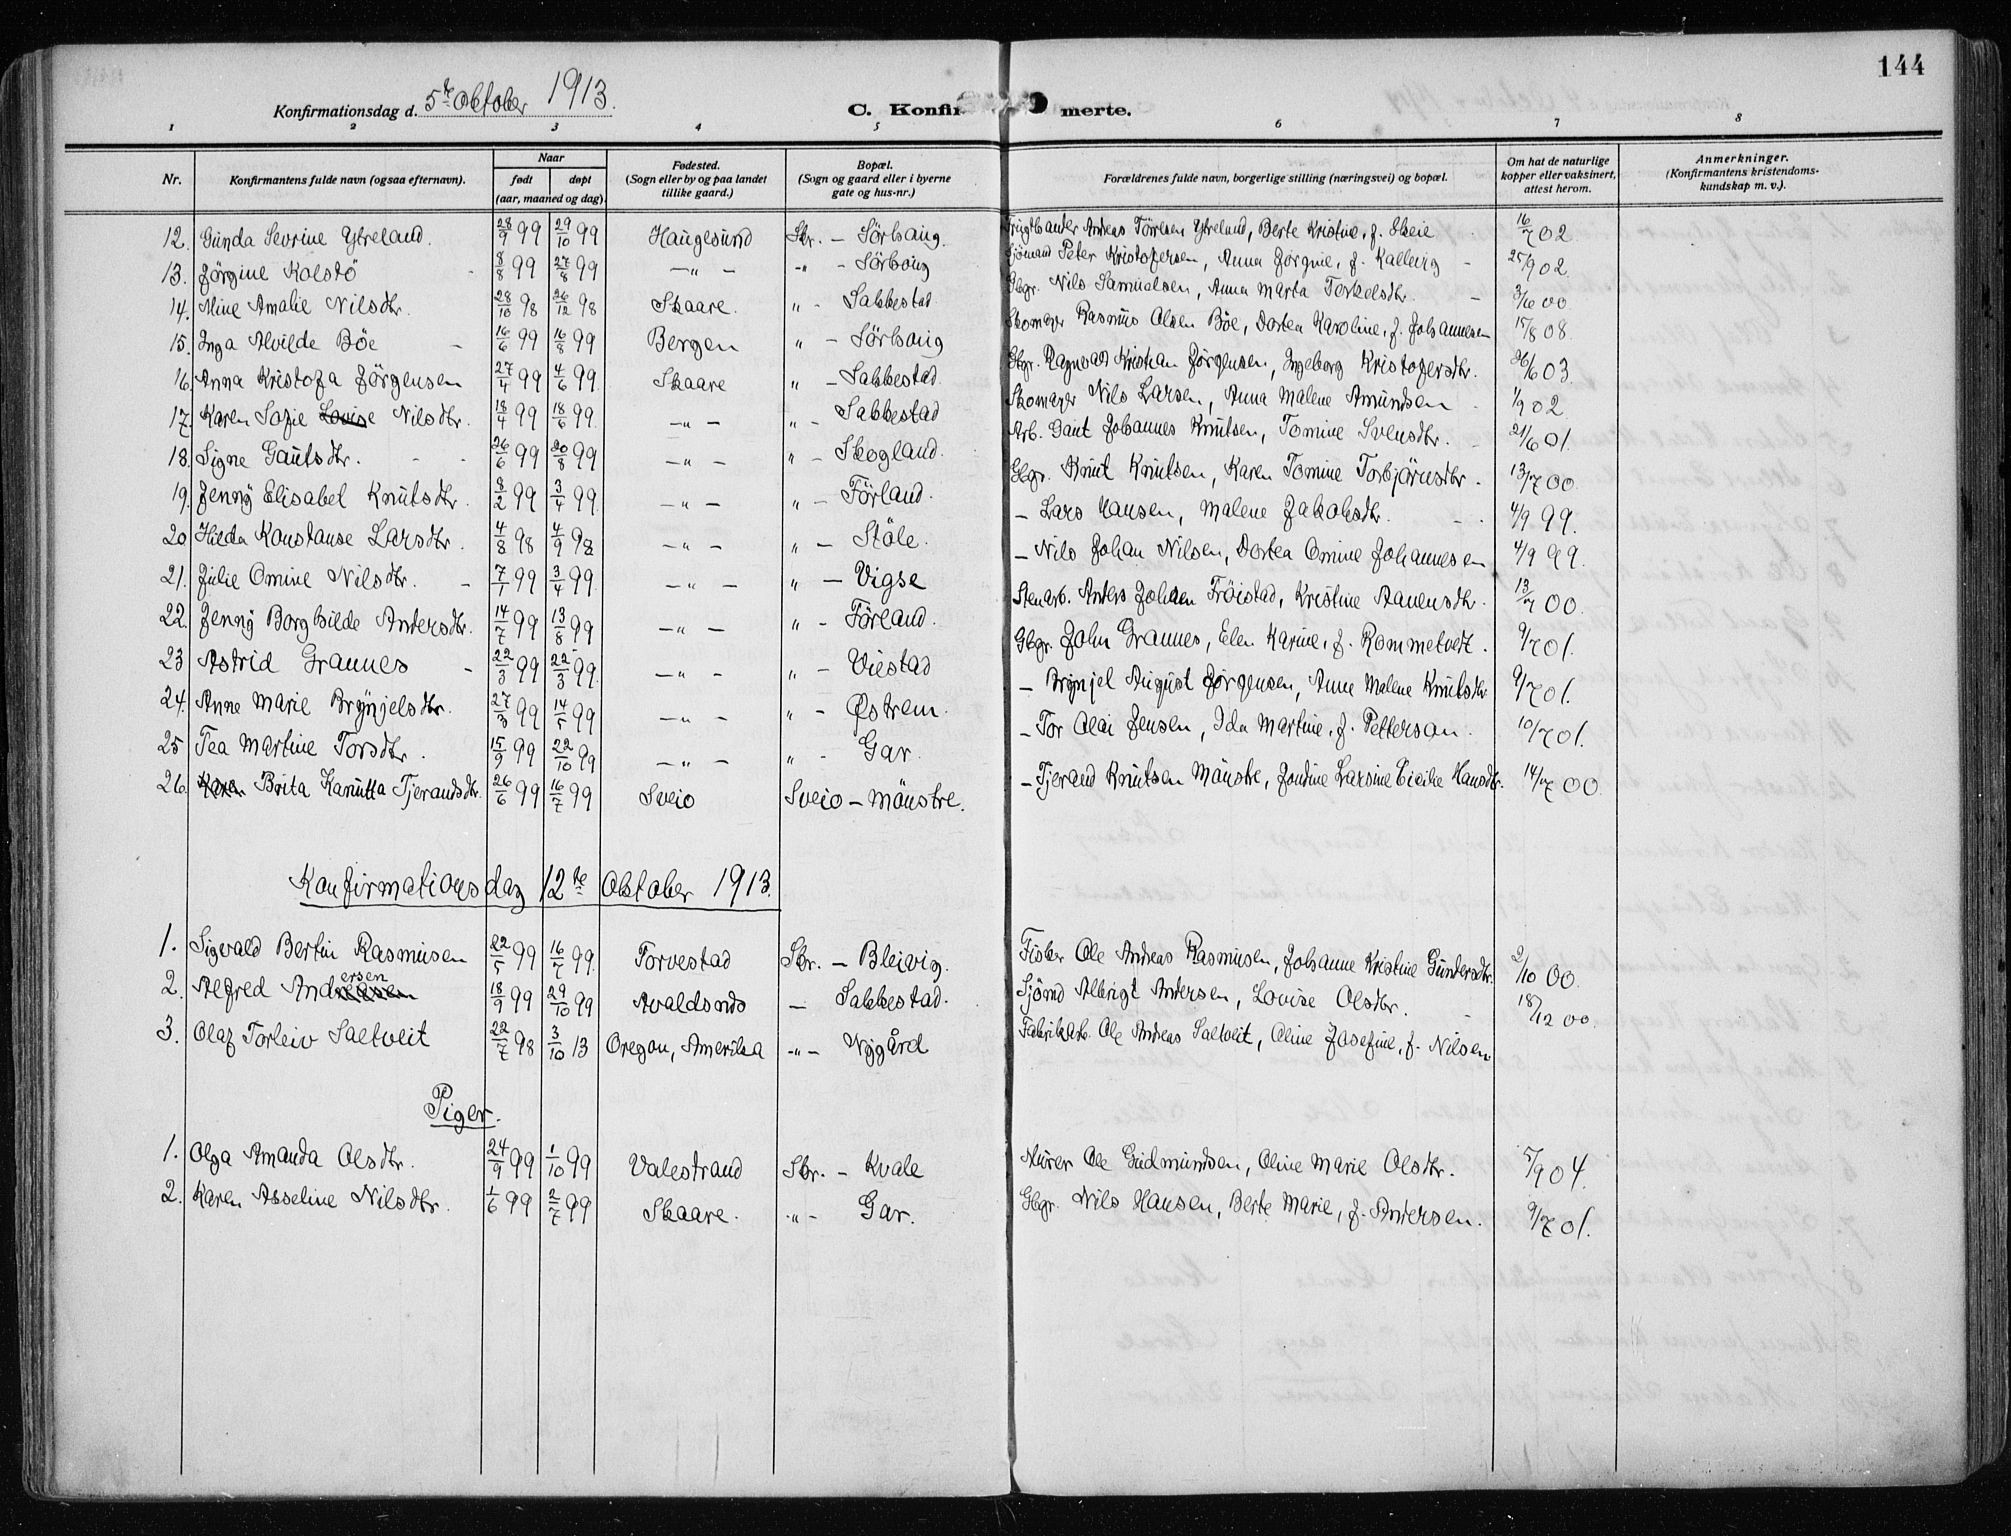 144
Konfirmationsdag d. 5te Oktober 1913.
C. Konfirmerte.
1 2 3 4 5 6 7 8
Nr. Konfirmantens fulde navn (ogsaa efternavn). Naar født døpt (aar, maaned og dag) Fødested. (Sogn eller by og paa landet tillike gaard.) Bopæl. (Sogn og gaard eller i byerne gate og hus-nr.) Forældrenes fulde navn, borgerlige stilling (næringsvei) og bopæl. Om hat de naturlige kopper eller vaksinert, attest herom. Anmerkninger. (Konfirmantens kristendoms-kundskap m. v.).
12. Gunda Sevrine Ytreland. 28/9 99 29/10 99 Haugesund Skr. - Sörhaug. Andreas Törresen Ytreland, Berte Kristine, f. Skeie 16/7 02
13. Jörgine Kolstö 8/8 99 27/8 99 -"- -"- Sörhaug Sjömand Peter Kristofersen, Anna Jörgine, f. Kallevig 25/9 02.
14. Mine Amalie Nilsdtr. 28/10 98 26/12 98 Skaare. " - Sakkestad Gbgr. Nils Samuelsen, Anna Marta Torkelsdtr. 3/6 00
15. Inga Alvilde Böe 16/6 99 16/8 99 Bergen " - Sörhaug Skomager Rasmus Olsen Böe, Dortea Karoline, f. Johannesen 15/8 08.
16. Anna Kristofa Jörgensen 27/4 99 4/6 99. Skaare " - Sakkestad. Gbgr. Ragnvald Kristian Jörgensen, Ingeborg Kristofersdtr. 26/6 03.
17. Karen Sofie Louise Nilsdtr. 18/4 99 18/6 99. -"- "- Sakkestad Skomager Nils Larsen, Anna Malene Amundsen 1/9 02
18. Signe Gautsdtr. 26/6 99 20/8 99 -"- " - Skogland. Arb. Gaut Johannes Knutsen, Tomine Svensdtr. 21/6 01.
19. Jenny Elisabet Knutsdtr. 8/2 99 3/4 99. -"- " - Förland. Gbgr. Knut Knutsen, Karen Tomine Torbjörnsdtr. 13/7 00
20 Hilda Konstanse Larsdtr. 4/8 98 4/9 98 -"- " - Stöle. - Lars Hansen, Malene Jakobsdtr. 4/9 99.
21. Julie Omine Nilsdtr. 7/1 99 3/4 99 -"- " - Vigse - Nils Johan Nilsen, Dortea Omine Johannesen 4/9 99.
22. Jenny Borghilde Andersdtr. 14/7 99 13/8 99 -"- " - Förland. Stenarb. Anders Johan Fröistad, Kristine Aanensdtr. 13/7 00.
23 Astrid Grannes 22/3 99 22/3 99. -"- " - Viestad Gbgr. John Grannes, Elen Karine, f. Rommetvedt. 9/7 01.
24. Anne Marie Brynjelsdtr. 27/3 99 14/5 99 -"- " - Østrem. - Brynjel August Jörgensen, Anne Malene Knutsdtr 9/7 01.
25 Tea Martine Torsdtr. 15/9 99 22/10 99 -"- " - Gar. - Tor Olai Jensen, Ida Martine, f. Petterson. 10/7 01.
26. Karen Brita Kanutta Tjerandsdtr. 26/6 99 16/7 99 Sveio Sveio - Mönstre. - Tjerand Knutsen Mönstre, Larsine Hansdtr. 14/7 00
Konfirmationsdag 12te Oktober 1913.
1. Sigvald Bertin Rasmusen 22/5 99 16/7 99. Torvestad Skr. - Bleivig. Fisker Ole Andreas Rasmusen, Johanne Kristine Gundersdtr. 2/10 00.
2. Alfred Andersen 18/9 99 29/10 99 Avaldsnes - Sakkestad. Sjömd Albrigt Andersen, Lovise Olsdtr. 18/12 00.
3. Olaf Torleiv Saltveit 22/7 98 3/10 13 Oregon, Amerika -"- Nygård Fabrikarb. Ole Andreas Saltveit, Oline Josefine, f. Nilsen
Piger.
1. Olga Amanda Olsdtr. 24/9 99 1/10 99 Valestrand Skr. - Kvale Murer Ole Gudmundsen, Oline Marie Olsdtr. 5/9 04.
2. Karen Asseline Nilsdtr. 1/6 99 2/7 99 Skaare. -"- Gar. Gbgr. Nils Hansen, Berte Marie, f. Andersen. 9/7 01.